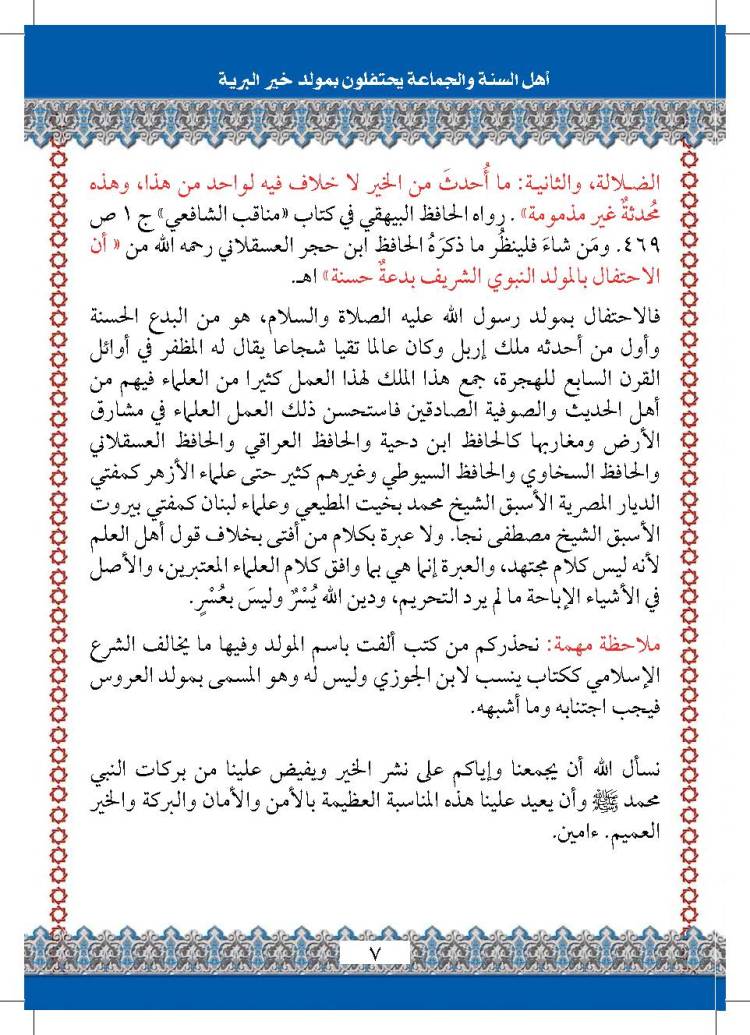 أهل السنة والجماعة يحتفلون بمولد خير البرية
الضلالة، والثانية: ما أُحدثَ من الخير لا خلاف فيه لواحد من هذا، وهذه
مُحدثةٌ غير مذمومة» . رواه الحافظ البيهقي في كتاب «مناقب الشافعي» ج ١ ص
٤٦٩. ومَن شاءَ فلينظُر ما ذكرَهُ الحافظ ابن حجر العسقلاني رحمه الله من « أن
الاحتفال بالمولد النبوي الشريف بدعةٌ حسنة» اهـ.
فالاحتفال بمولد رسول الله عليه الصلاة والسلام، هو من البدع الحسنة
وأول من أحدثه ملك إربل وكان عالما تقيا شجاعا يقال له المظفر في أوائل
القرن السابع للهجرة، جمع هذا الملك لهذا العمل كثيرا من العلماء فيهم من
أهل الحديث والصوفية الصادقين فاستحسن ذلك العمل العلماء في مشارق
الأرض ومغاربها كالحافظ ابن دحية والحافظ العراقي والحافظ العسقلاني
والحافظ السخاوي والحافظ السيوطي وغيرهم كثير حتى علماء الأزهر كمفتي
الديار المصرية الأسبق الشيخ محمد بخيت المطيعي وعلماء لبنان كمفتي بيروت
الأسبق الشيخ مصطفى نجا. ولا عبرة بكلام من أفتى بخلاف قول أهل العلم
لأنه ليس كلام مجتهد، والعبرة إنما هي بما وافق كلام العلماء المعتبرين، والأصل
في الأشياء الإباحة ما لم يرد التحريم، ودين الله يُسْرٌ وليسَ بعُسْرٍ.
ملاحظة مهمة: نحذركم من كتب ألفت باسم المولد وفيها ما يخالف الشرع
الإسلامي ككتاب ينسب لابن الجوزي وليس له وهو المسمى بمولد العروس
فيجب اجتنابه وما أشبهه.
نسأل الله أن يجمعنا وإياكم على نشر الخير ويفيض علينا من بركات النبي
محمد ﷺ وأن يعيد علينا هذه المناسبة العظيمة بالأمن والأمان والبركة والخير
العميم. ءامين.
٧